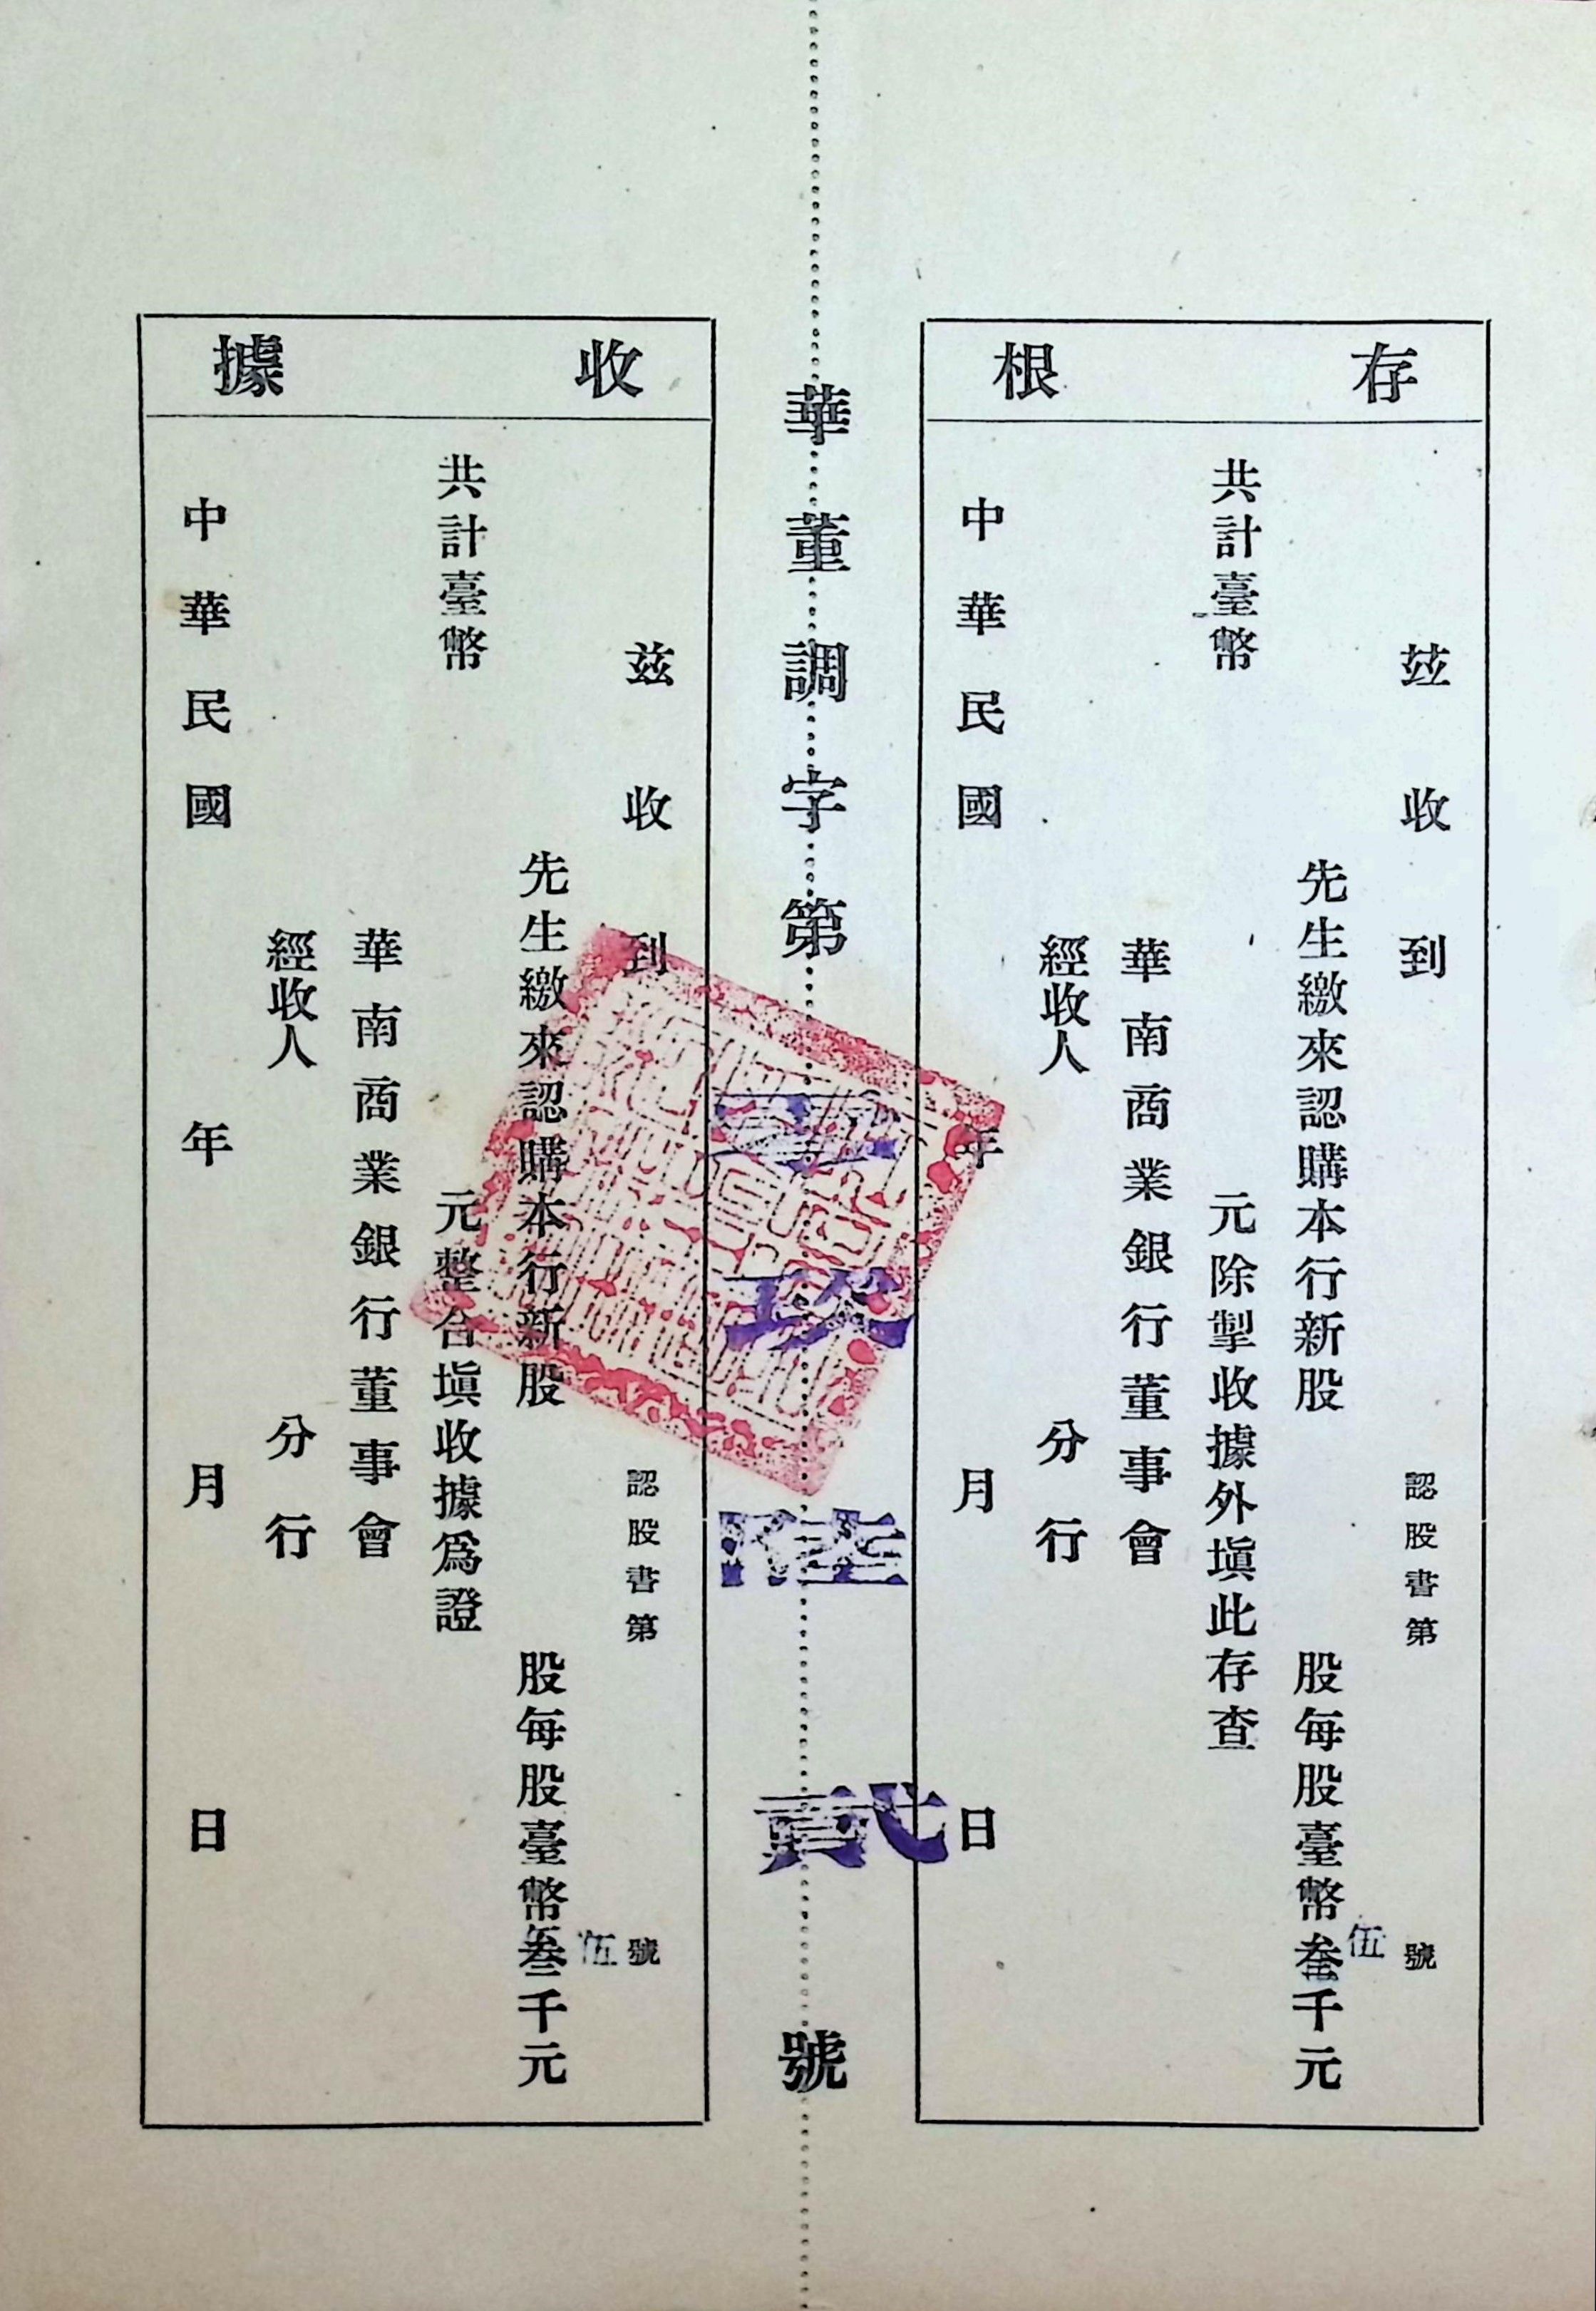 存根
茲收到
認股書第 號
先生繳來認購本行新股 股每股臺幣叁千元
伍
共計臺幣 元除掣收據外塡此存查
華南商業銀行董事會
經收人 分行
中華民國 年 月 日
華董調字第 玖陸貳號
收據
茲收到
認股書第 號
先生繳來認購本行新股 股每股臺幣叁千元
伍
共計臺幣 元整合塡收據爲證
華南商業銀行董事會
經收人 分行
中華民國 年 月 日